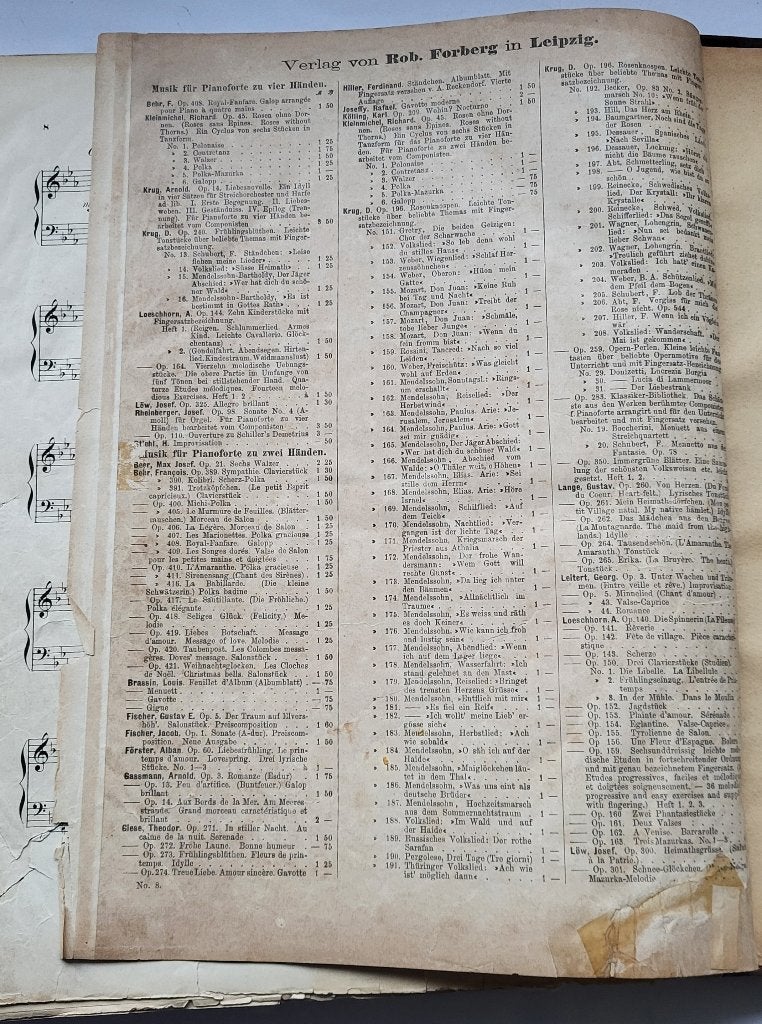 8
Verlag von Rob. Forberg in Leipzig.
Musik für Pianoforte zu vier Händen.
Behr, F. Op. 408. Royal-Fanfare. Galop arrangée
pour Piano à quatre mains 1 50
Kleinmichel, Richard. Op. 45. Rosen ohne Dor-
nen. (Roses sans Épines. Roses without
Thorns.) Ein Cyclus von sechs Stücken in
Tanzform.
No. 1. Polonaise 1 25
» 2. Contretanz 1 75
» 3. Walzer 1 50
» 4. Polka 1 25
» 5. Polka-Mazurka 1 25
» 6. Galopp 1 25
Krug, Arnold. Op. 14. Liebesnovelle. Ein Idyll
in vier Sätzen für Streichorchester und Harfe
ad lib. I. Erste Begegnung. II. Liebes-
weben. III. Geständniss. IV. Epilog (Tren-
nung). Für Pianoforte zu vier Händen be-
arbeitet vom Componisten 3 50
Krug, D. Op. 240. Frühlingsblüthen. Leichte
Tonstücke über beliebte Themas mit Finger-
satzbezeichnung.
No. 13. Schubert, F. Ständchen: »Leise
flehen meine Lieder« 1 25
» 14. Volkslied: »Süsse Heimath« 1 25
» 15. Mendelssohn-Bartholdy, Der Jäger
Abschied: »Wer hat dich du schö-
ner Wald« 1 25
» 16. Mendelssohn-Bartholdy, »Es ist
bestimmt in Gottes Rath« 1 25
Loeschhorn, A. Op. 144. Zehn Kinderstücke mit
Fingersatzbezeichnung.
Heft 1. (Reigen. Schlummerlied. Armes
Kind. Leichte Cavallerie. Glöck-
chentanz) 1 50
» 2. (Gondelfahrt. Abendsegen. Hirten-
lied. Kindestraum. Waidmannslust) 1 50
— Op. 164. Vierzehn melodische Uebungs-
stücke. Die obere Partie im Umfange von
fünf Tönen bei stillstehender Hand. Qua-
torze Etudes mélodiques. Fourteen melo-
dious Exercises. Heft 1. 2 à 1 50
Löw, Josef. Op. 325. Allegro brillant 1 50
Rheinberger, Josef. Op. 98. Sonate No. 4 (A-
moll) für Orgel. Für Pianoforte zu vier
Händen bearbeitet vom Componisten 3 50
— Op. 110. Ouverture zu Schiller's Demetrius 3 —
Stiehl, H. Improvisation 50
Musik für Pianoforte zu zwei Händen.
Beer, Max Josef. Op. 21. Sechs Walzer 2 25
Behr, François. Op. 389. Sympathie. Clavierstück 1 30
— » 390. Kolibri. Scherz-Polka 1 50
— » 391. Trotzköpfchen. (Le petit Esprit
capricieux.) Clavierstück 1 50
— Op. 400. Michi-Polka 1 50
— » 405. Le Murmure de Feuilles. (Blätter-
rauschen.) Morceau de Salon 1 50
— Op. 406. La Légère. Morceau de Salon 1 25
— » 407. Les Marionettes. Polka gracieuse 1 25
— » 408. Royal-Fanfare. Galopp 1 25
— » 409. Les Songes dorés. Valse de Salon
pour les petites mains et doigtées 1 75
— Op. 410. L'Amaranthe. Polka gracieuse 1 25
— » 411. Sirenensang. (Chant des Sirènes) 1 25
— » 416. La Babillarde. (Die kleine
Schwätzerin.) Polka badine 1 50
— Op. 417. Le Sautillante. (Die Fröhliche.)
Polka élégante 1 25
— Op. 418. Seliges Glück. (Felicity.) Me-
lodie 1 25
— Op. 419. Liebes Botschaft. Message
d'amour. Message of love. Melodie 1 25
— Op. 420. Taubenpost. Les Colombes messa-
gères. Doves' message. Salonstück 1 50
— Op. 421. Weihnachtsglocken. Les Cloches
de Noël. Christmas bells. Salonstück 1 50
Brassin, Louis. Feuillet d'Album (Albumblatt) — 75
— Menuett 1 —
— Gavotte — 75
— Gigue — 75
Fischer, Gustav E. Op. 5. Der Traum auf Elvers-
höh'. Salonstück. Preiscomposition 1 60
Fischer, Jacob. Op. 1. Sonate (A-dur). Preiscompo-
sition. Neue Ausgabe 1 50
Förster, Alban. Op. 60. Liebesfrühling. Le prin-
temps d'amour. Lovespring. Drei lyrische
Stücke. No. 1—3 1 —
Gassmann, Arnold. Op. 3. Romanze (Esdur) 1 75
— Op. 13. Feu d'artifice. (Buntfeuer.) Galop
brillant 1 50
— Op. 14. Aux Bords de la Mer. Am Meeres-
strande. Grand morceau caractéristique et
brillant 2 —
Giese, Theodor. Op. 271. In stiller Nacht. Au
calme de la nuit. Serenade 1 50
— Op. 272. Frohe Laune. Bonne humeur — 75
— Op. 273. Frühlingsblüthen. Fleurs de prin-
temps. Idylle 1 25
— Op. 274. Treue Liebe. Amour sincère. Gavotte 1 —
No. 8.
Hiller, Ferdinand. Ständchen. Albumblatt. Mit
Fingersatz versehen v. A. Reckendorf. Vierte
Auflage 1 50
Joseffy, Rafael. Gavotte moderne 2 —
Kölling, Karl. Op. 209. Wohin? Nocturno 1 50
Kleinmichel, Richard. Op. 45. Rosen ohne Dor-
nen. (Roses sans Épines. Roses without
Thorns.) Ein Cyclus von sechs Stücken in
Tanzform für das Pianoforte zu vier Hän-
den. Für Pianoforte zu zwei Händen bear-
beitet vom Componisten
No. 1. Polonaise 1 —
» 2. Contretanz 1 —
» 3. Walzer — 75
» 4. Polka — 75
» 5. Polka-Mazurka — 75
» 6. Galopp 1 —
Krug, D. Op. 196. Rosenknospen. Leichte Ton-
stücke über beliebte Themas mit Finger-
satzbezeichnung.
No. 151. Gretry, Die beiden Geizigen:
Chor der Scharwache 1 —
» 152. Volkslied: »So leb denn wohl
du stilles Haus« 1 —
» 153. Weber, Wiegenlied: »Schlaf Her-
zenssöhnchen« 1 —
» 154. Weber, Oberon: »Hüon mein
Gatte« 1 —
» 155. Mozart, Don Juan: »Keine Ruh
bei Tag und Nacht« 1 —
» 156. Mozart, Don Juan: »Treibt der
Champagner« 1 —
» 157. Mozart, Don Juan: »Schmäle,
tobe lieber Junge« 1 —
» 158. Mozart, Don Juan: »Wenn du
fein fromm bist« 1 —
» 159. Rossini, Tancred: »Nach so viel
Leiden« 1 —
» 160. Weber, Freischütz: »Was gleicht
wohl auf Erden« 1 —
» 161. Mendelssohn, Sonntagsl.: »Rings-
um erschallt« 1 —
» 162. Mendelssohn, Reiselied: »Der
Herbstwind« 1 —
» 163. Mendelssohn, Paulus. Arie: »Je-
rusalem, Jerusalem« 1 —
» 164. Mendelssohn, Paulus: Arie: »Gott
sei mir gnädig« 1 —
» 165. Mendelssohn, Der Jäger Abschied:
»Wer hat dich du schöner Wald« 1 —
» 166. Mendelssohn, Abschied vom
Walde: »O Thäler weit, o Höhen« 1 —
» 167. Mendelssohn, Elias. Arie: »Sei
stille dem Herrn« 1 —
» 168. Mendelssohn, Elias. Arie: »Höre
Israel« 1 —
» 169. Mendelssohn, Schilflied: »Auf
dem Teich« 1 —
» 170. Mendelssohn, Nachtlied: »Ver-
gangen ist der lichte Tag« 1 —
» 171. Mendelssohn, Kriegsmarsch der
Priester aus Athalia 1 —
» 172. Mendelssohn, Der frohe Wan-
dersmann: »Wem Gott will
rechte Gunst« 1 —
» 173. Mendelssohn, »Da lieg ich unter
den Bäumen« 1 —
» 174. Mendelssohn, »Allnächtlich im
Traume« 1 —
» 175. Mendelssohn, »Es weiss und räth
es doch Keiner« 1 —
» 176. Mendelssohn, »Wie kann ich froh
und lustig sein« 1 —
» 177. Mendelssohn, Abendlied: »Wenn
ich auf dem Lager liege« 1 —
» 178. Mendelssohn, Wasserfahrt: »Ich
stand gelehnet an den Mast« 1 —
» 179. Mendelssohn, Reiselied: »Bringet
des treusten Herzens Grüsse« 1 —
» 180. Mendelssohn, »Entflieh mit mir« 1 —
» 181. — »Es fiel ein Reif« 1 —
» 182. — »Ich wollt' meine Lieb' er-
gösse sich« 1 —
» 183. Mendelssohn, Herbstlied: »Ach
wie sobald« 1 —
» 184. Mendelssohn, »O säh ich auf der
Haide« 1 —
» 185. Mendelssohn, »Maiglöckchen läu-
tet in dem Thal« 1 —
» 186. Mendelssohn, »Was uns eint als
deutsche Brüder« 1 —
» 187. Mendelssohn, Hochzeitsmarsch
aus dem Sommernachtstraum 1 —
» 188. Volkslied: »Im Wald und auf
der Haide« 1 —
» 189. Russisches Volkslied: Der rothe
Sarafan 1 —
» 190. Pergolese, Drei Tage (Tre giorni) 1 —
» 191. Thüringer Volkslied: »Ach wie
ist' möglich dann« 1 —
Krug, D. Op. 196. Rosenknospen. Leichte Ton-
stücke über beliebte Themas mit Finger-
satzbezeichnung.
No. 192. Becker, Op. 83 No. 2.
marsch No. 10: »Wenn früh
Sonne Strahl«
» 193. Hill, Das Herz am Rhein
» 194. Baumgartner, Noch sind die Tage
der Rosen
» 195. Dessauer, Spanisches Lied
»Nach Sevilla«
» 196. Dessauer, Lockung: »Hörst du
nicht die Bäume rauschen«
» 197. Abt, Schmetterling, setz
» 198. — O Jugend, wie bist du so
schön
» 199. Reinecke, Schwedisches Volks-
lied, Der Krystall: »Ihr klaren
Krystalle«
» 200. Reinecke, Schwed. Volkslied,
Schifferlied: »Das Segel
» 201. Wagner, Lohengrin, Schwanen-
lied: »Nun sei bedankt, mein
lieber Schwan«
» 202. Wagner, Lohengrin, Brautlied:
»Treulich geführt ziehet dahin«
» 203. Volkslied: »Ich hatt' einen Ka-
meraden
» 204. Weber, B. A. Schützenlied: »Mit
dem Pfeil dem Bogen«
» 205. Schubert, F. Lob der Thränen
» 206. Abt, F. Vergiss für mich
Rose nicht. Op. 544
» 207. Hiller, F. Wenn ich ein Vöglein
wär
» 208. Volkslied: Wanderschaft. »Der
Mai ist gekommen«
— Op. 259. Opern-Perlen. Kleine leichte Fan-
tasien über beliebte Opernmotive für den
Unterricht und mit Fingersatz-Bezeichnung.
No. 29. Donizetti, Lucrezia Borgia
» 30. — Lucia di Lammermoor
» 31. — Der Liebestrank
— Op. 283. Klassiker-Bibliothek. Das Schön-
ste aus den Werken berühmter Componisten
f. Pianoforte arrangirt und für den Unterricht
bearbeitet und mit Fingersatz versehen.
No. 19. Boccherini, Menuett aus
Streichquartett
» 20. Schubert, F., Menuetto aus
Fantasie. Op. 78
— Op. 350. Immergrüne Blätter. Eine Samm-
lung der schönsten Volksweisen etc. leicht
gesetzt. Heft 1.
Lange, Gustav. Op. 260. Von Herzen. (Du Fond
du Coeur. Heart-felt.) Lyrisches Tonstück
— Op. 261. Mein Heimath-Dörfchen. (Mon pe-
tit Village natal. My native hamlet.) Idylle
— Op. 262. Das Mädchen aus den Bergen
(La Montagnarde. The maid from the high-
lands.) Idylle
— Op. 264. Tausendschön. (L'Amaranthe. The
Amarauth.) Tonstück
— Op. 265. Erika. (La Bruyère. The heath.)
Tonstück
Leitert, Georg. Op. 3. Unter Wachen und Träu-
men. (Entre veille et rêve.) Improvisation
— Op. 5. Minnelied (Chant d'amour)
— » 43. Valse-Caprice
— » 44. Romance
Loeschhorn, A. Op. 140. Die Spinnerin (La Fileuse)
— Op. 141. Rêverie
— Op. 142. Fête de village. Pièce caracté-
ristique
— Op. 143. Scherzo
— Op. 150. Drei Clavierstücke (Studien).
No. 1. Die Libelle. La Libellule
» 2. Frühlingseinzug. L'entrée de Prin-
temps
» 3. In der Mühle. Dans le Moulin
— Op. 152. Jagdstück
— Op. 153. Plainte d'amour. Sérénade
— Op. 154. Eglantine. Valse-Caprice
— Op. 155. Tyrolienne de Salon
— Op. 156. Une Fleur d'Espagne. Bolero
— Op. 159. Sechsunddreissig leichte melo-
dische Etuden in fortschreitender Ordnung
und mit genau bezeichnetem Fingersatz.
Etudes progressives, faciles et mélodiques
et doigtées soigneusement. — 36 melodious
progressive and easy exercises and supplied
with fingering.) Heft 1. 2. 3.
— Op. 160. Zwei Phantasiestücke
— Op. 161. Deux Valses
— Op. 162. A Venise. Barcarolle
— Op. 163. Trois Mazurkas. No. 1—3
Löw, Josef. Op. 300. Heimathsgrüsse.
à la Patrie.)
— Op. 301. Schnee-Glöckchen.
Mazurka-Melodie